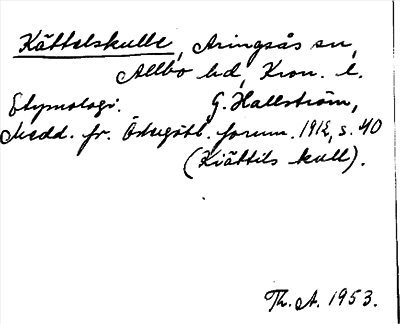 Kättelskulle, Aringsås sn,
Allbo hd, Kron. l.
Etymologi. G. Hallström,
Medd. fr. Östergötl. fornm. 1912, s. 40
(Kiättils kull).
Th. A. 1953.